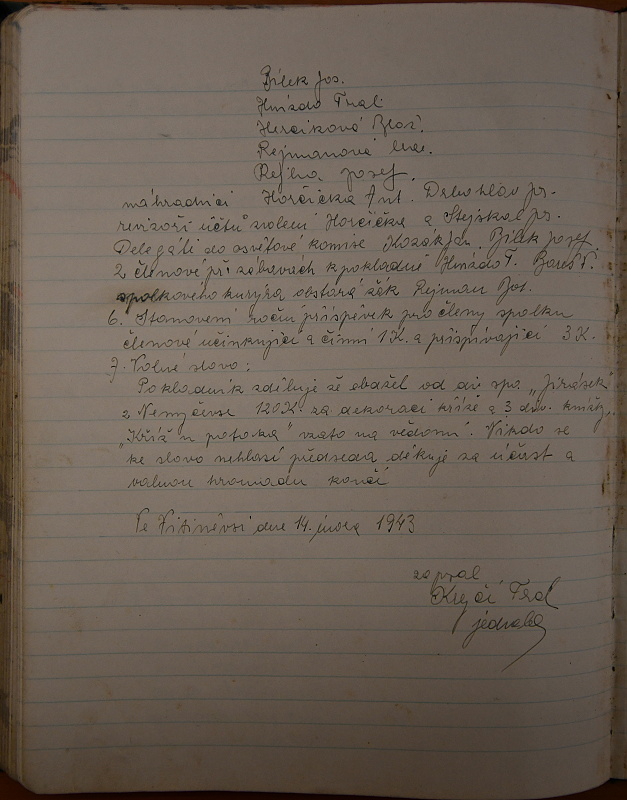 Bílek Jos.
Hnízdo Fral
Herčíková Blaž.
Rejmanová
Rejha Josef.
náhradníci Horčička Ant. Drbohlav Jr.
revizoři účtů zvoleni Horčička a Stejskal Jr.
Delegáti do osvětové komise Kozák Jan, Bílek Josef.
2 členové při zábavách k pokladně Hnízdo F. Bareš F.
spolkového kurýra obstará žák Rejman Bož.
6. Stanovení roční příspěvek pro členy spolku
členové účinkující a činní 1K. a přispívající 3K.
7. Volné slovo:
Pokladník sděluje že obdžel od div spo. „Jirásek"
z Němčevse 120K. za dekoraci kříže a 3 div. knížky
„Kříž u potoka" vzato na vědomí. Nikdo se
ke slovo nehlásí předseda děkuje za účast a
valnou hromadu končí
Ve Vitiněvsi dne 14. února 1943
zapsal
Krejčí Frol
jednatel